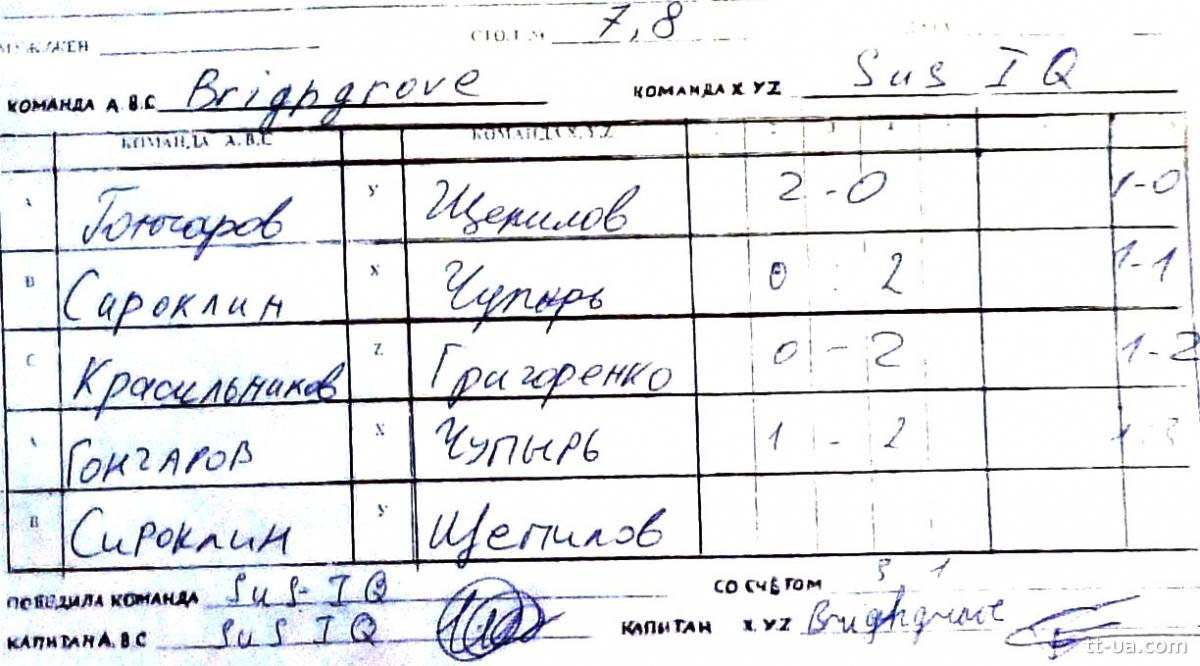 МУЖ/ЖЕН СТОЛ № 7,8
КОМАНДА А.В.С Brighgrove КОМАНДА X.YZ Sus IQ
КОМАНДА А.В.С КОМАНДА X.Y.Z 2 3 4
A Гончаров У Щепилов 2-0 1-0
B Сироклин X Чупырь 0 : 2 1-1
C Красильников Z Григоренко 0 - 2 1-2
A Гончаров X Чупырь 1 - 2 1-3
B Сироклин У Щепилов
ПОБЕДИЛА КОМАНДА Sus-IQ СО СЧЁТОМ 3 1
КАПИТАН А.ВС Sus IQ КАПИТАН X.Y.Z Brighgrove
tt-ua.com